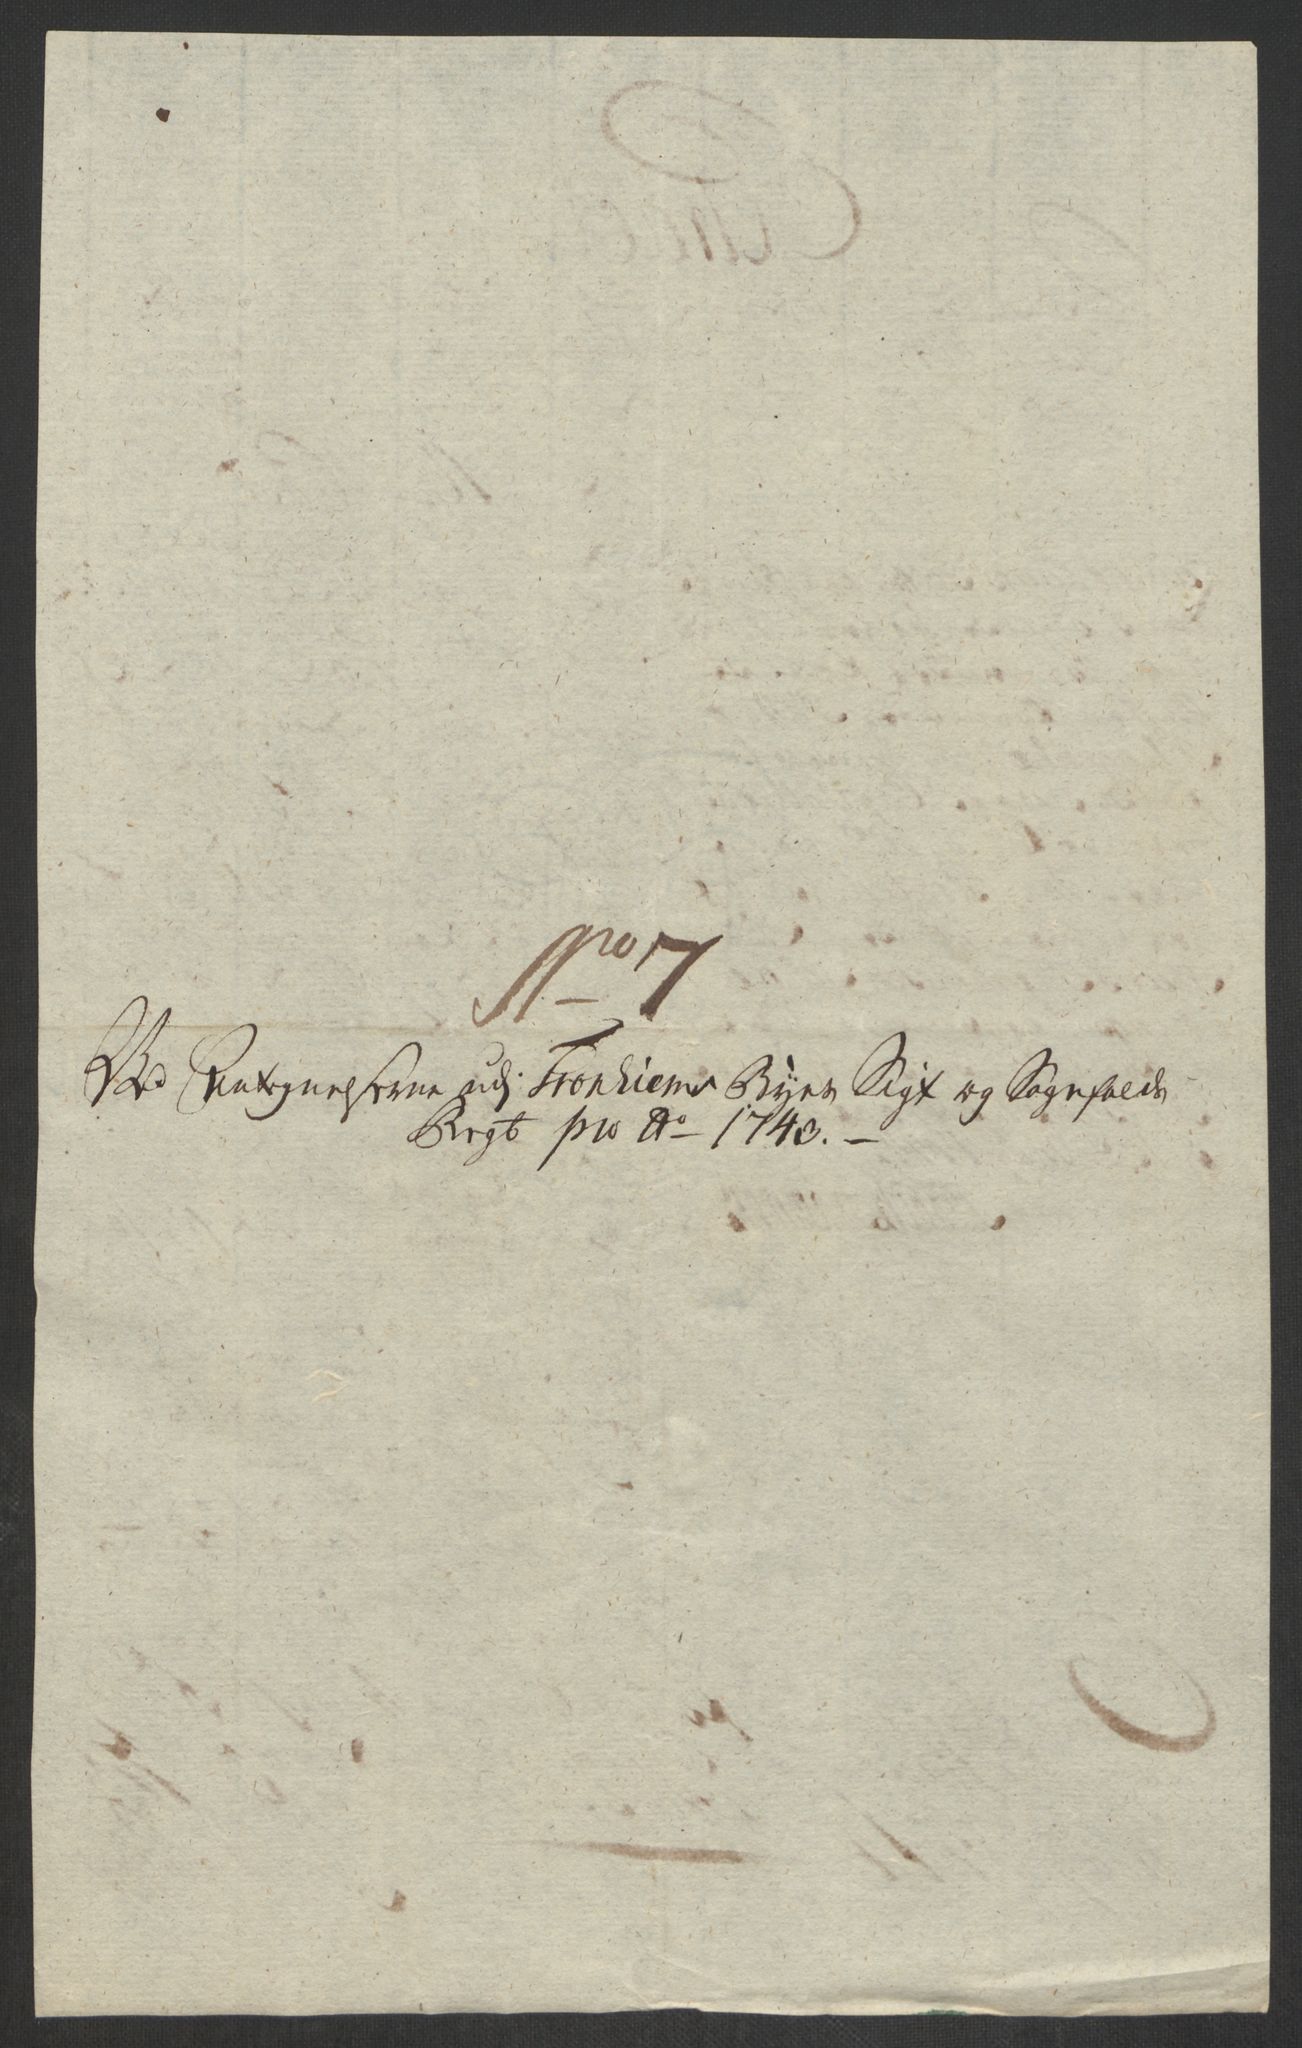 No 7
Ved Antegnelserne udj Tronhiems Byes Sigt og Sagefalds
Regb pro Ao 1743. —